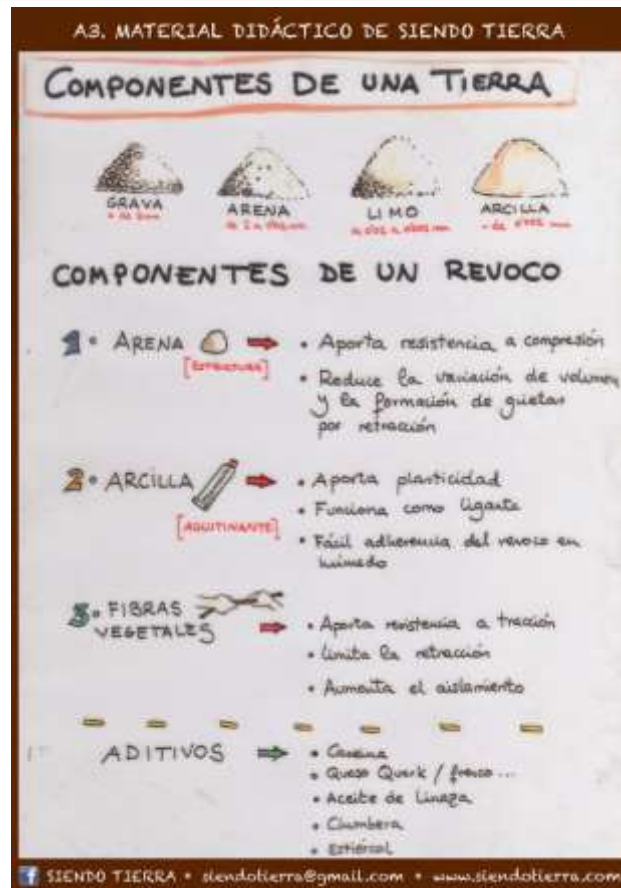 A3. MATERIAL DIDÁCTICO DE SIENDO TIERRA
COMPONENTES DE UNA TIERRA
GRAVA
ARENA
LIMO
ARCILLA
+ de 2mm
COMPONENTES DE UN REVOCO
1. ARENA
[ESTRUCTURA]
• Aporta resistencia a compresión
• Reduce la variación de volumen
y la formación de grietas
por retracción
2. ARCILLA
[AGLUTINANTE]
• Aporta plasticidad
• Funciona como ligante
• Fácil adherencia del revoco en
húmedo
3. FIBRAS
VEGETALES
• Aporta resistencia a tracción
• Limita la retracción
• Aumenta el aislamiento
ADITIVOS
• Caseína
• Queso Quark / fresco...
• Aceite de Linaza
• Chumbera
• Estiércol
f SIENDO TIERRA • siendotierra@gmail.com • www.siendotierra.com